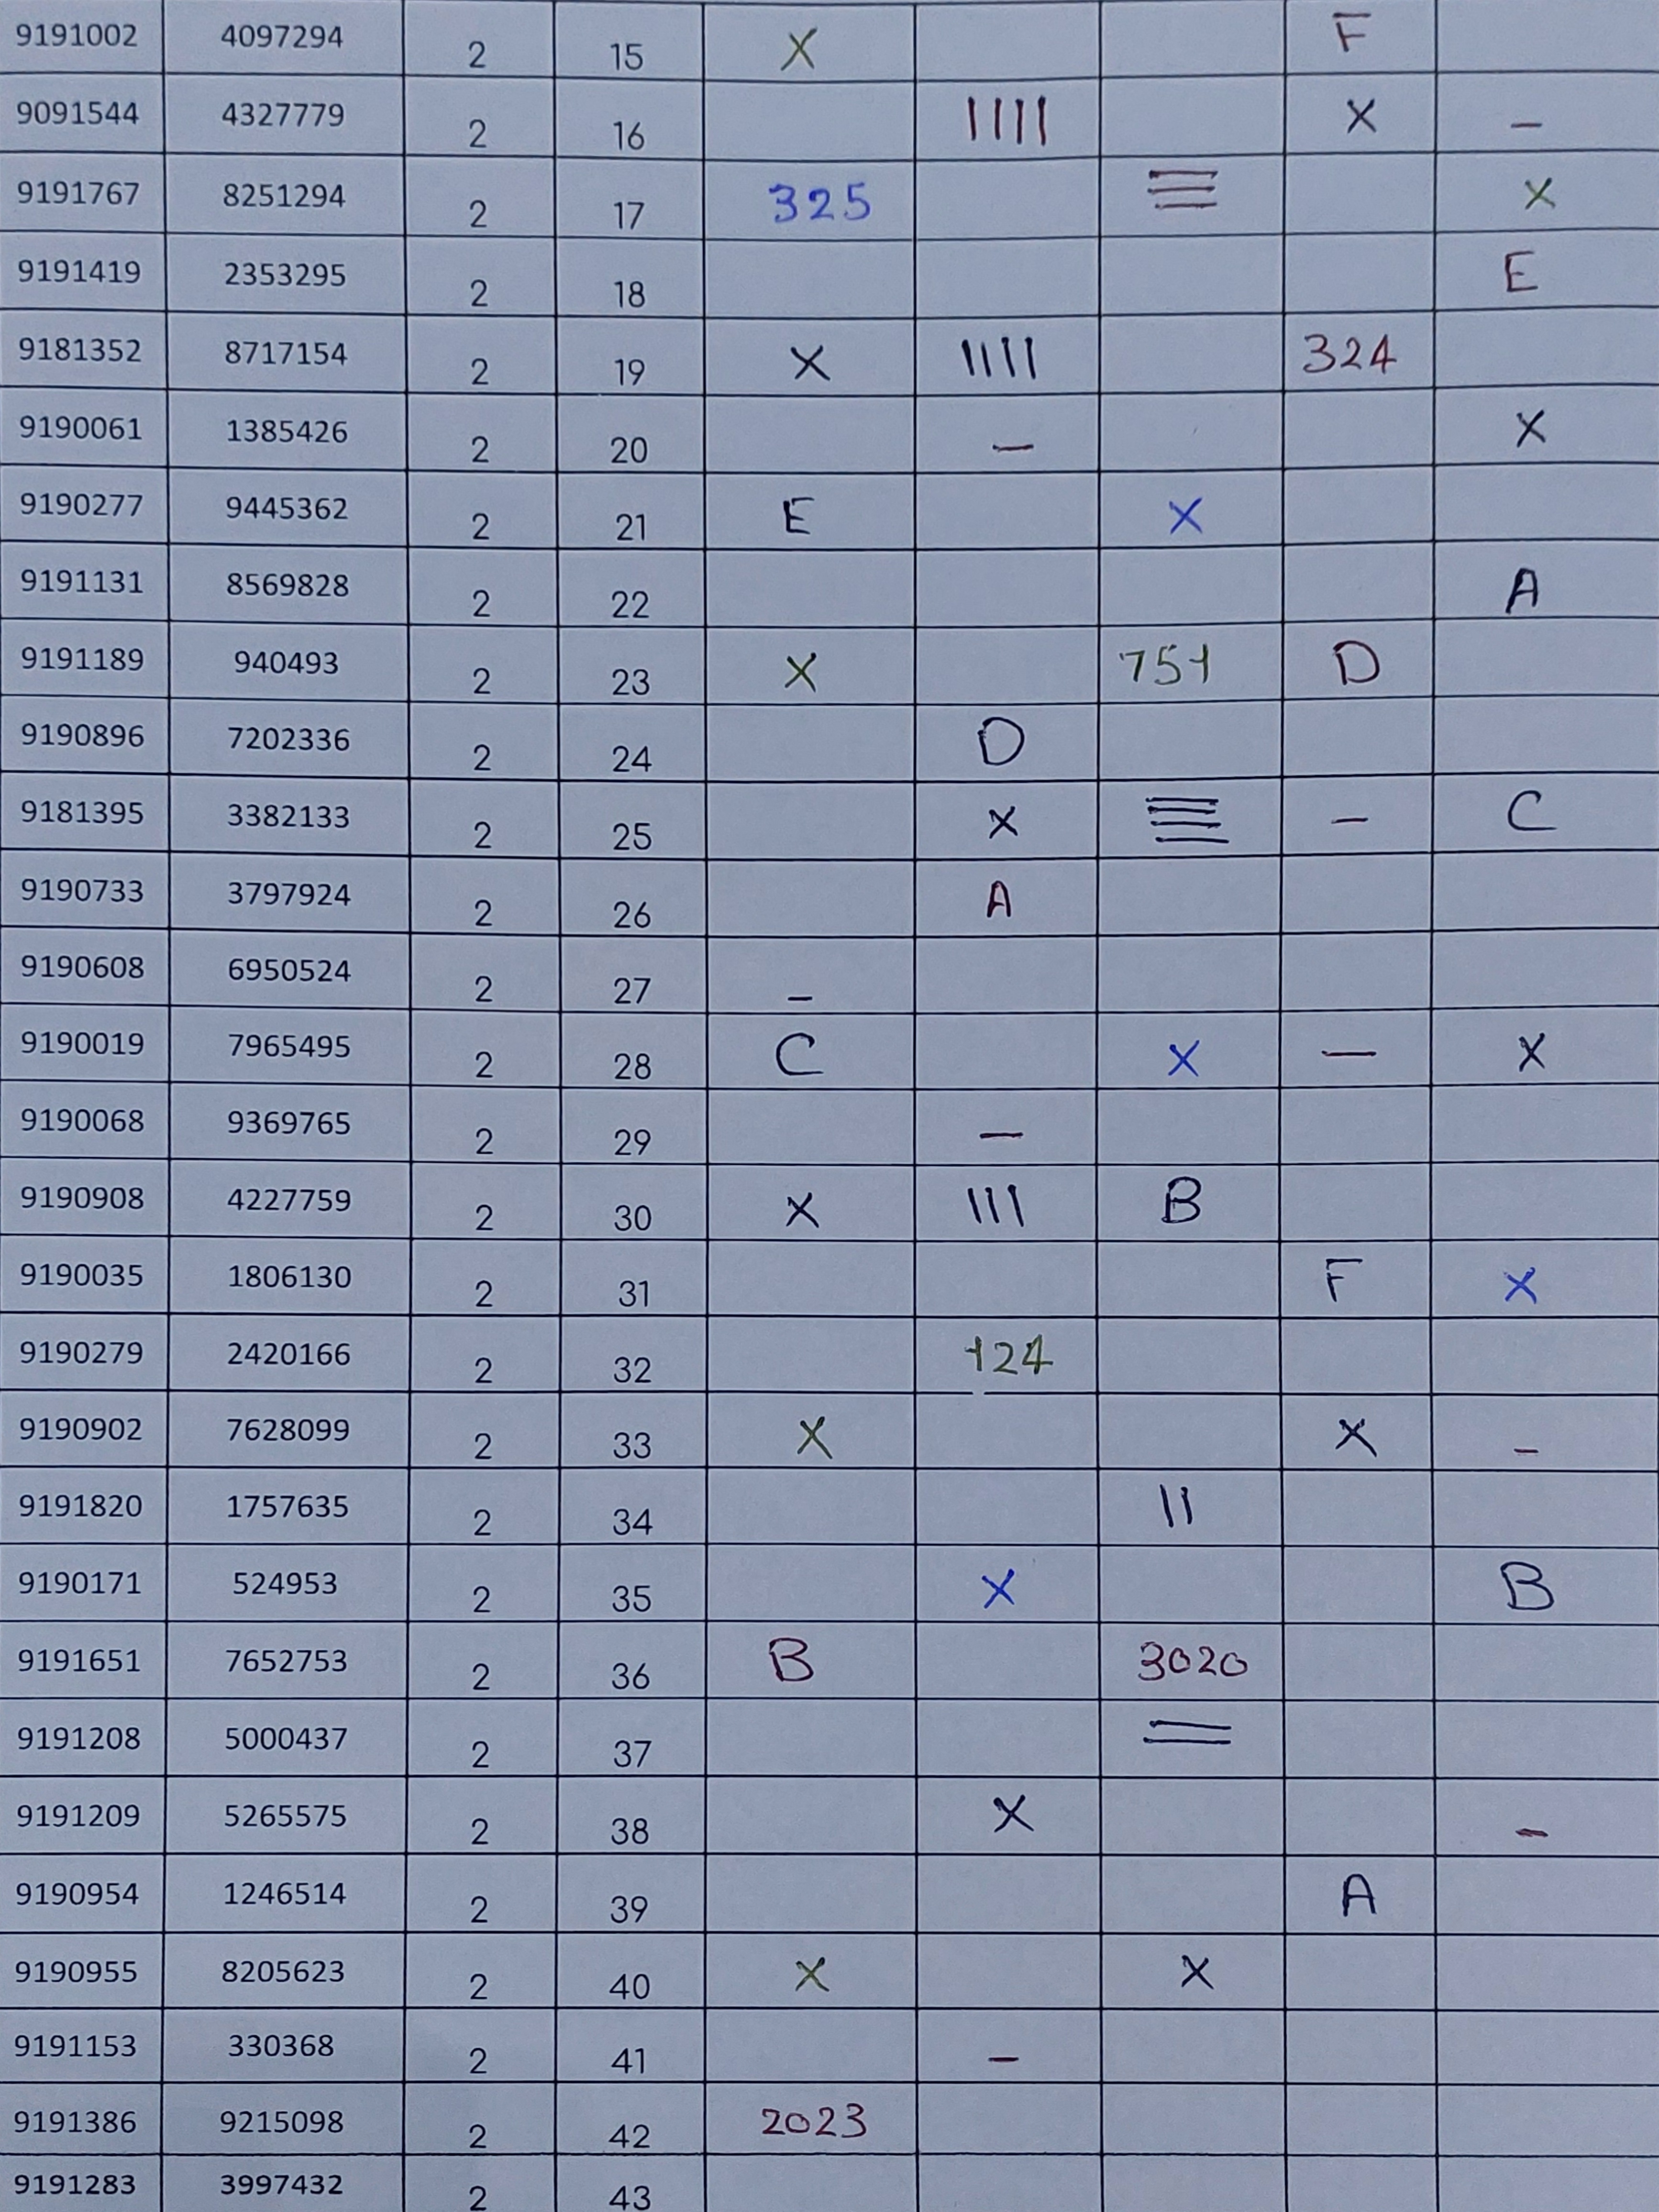 9191002 4097294 2 15 X F
9091544 4327779 2 16 |||| X –
9191767 8251294 2 17 325 ☰ X
9191419 2353295 2 18 E
9181352 8717154 2 19 X |||| 324
9190061 1385426 2 20 – X
9190277 9445362 2 21 E X
9191131 8569828 2 22 A
9191189 940493 2 23 X 751 D
9190896 7202336 2 24 D
9181395 3382133 2 25 X – C
9190733 3797924 2 26 A
9190608 6950524 2 27 –
9190019 7965495 2 28 C X – X
9190068 9369765 2 29 –
9190908 4227759 2 30 X ||| B
9190035 1806130 2 31 F X
9190279 2420166 2 32 124
9190902 7628099 2 33 X X –
9191820 1757635 2 34 ||
9190171 524953 2 35 X B
9191651 7652753 2 36 B 3020
9191208 5000437 2 37 =
9191209 5265575 2 38 X –
9190954 1246514 2 39 A
9190955 8205623 2 40 X X
9191153 330368 2 41 –
9191386 9215098 2 42 2023
9191283 3997432 2 43